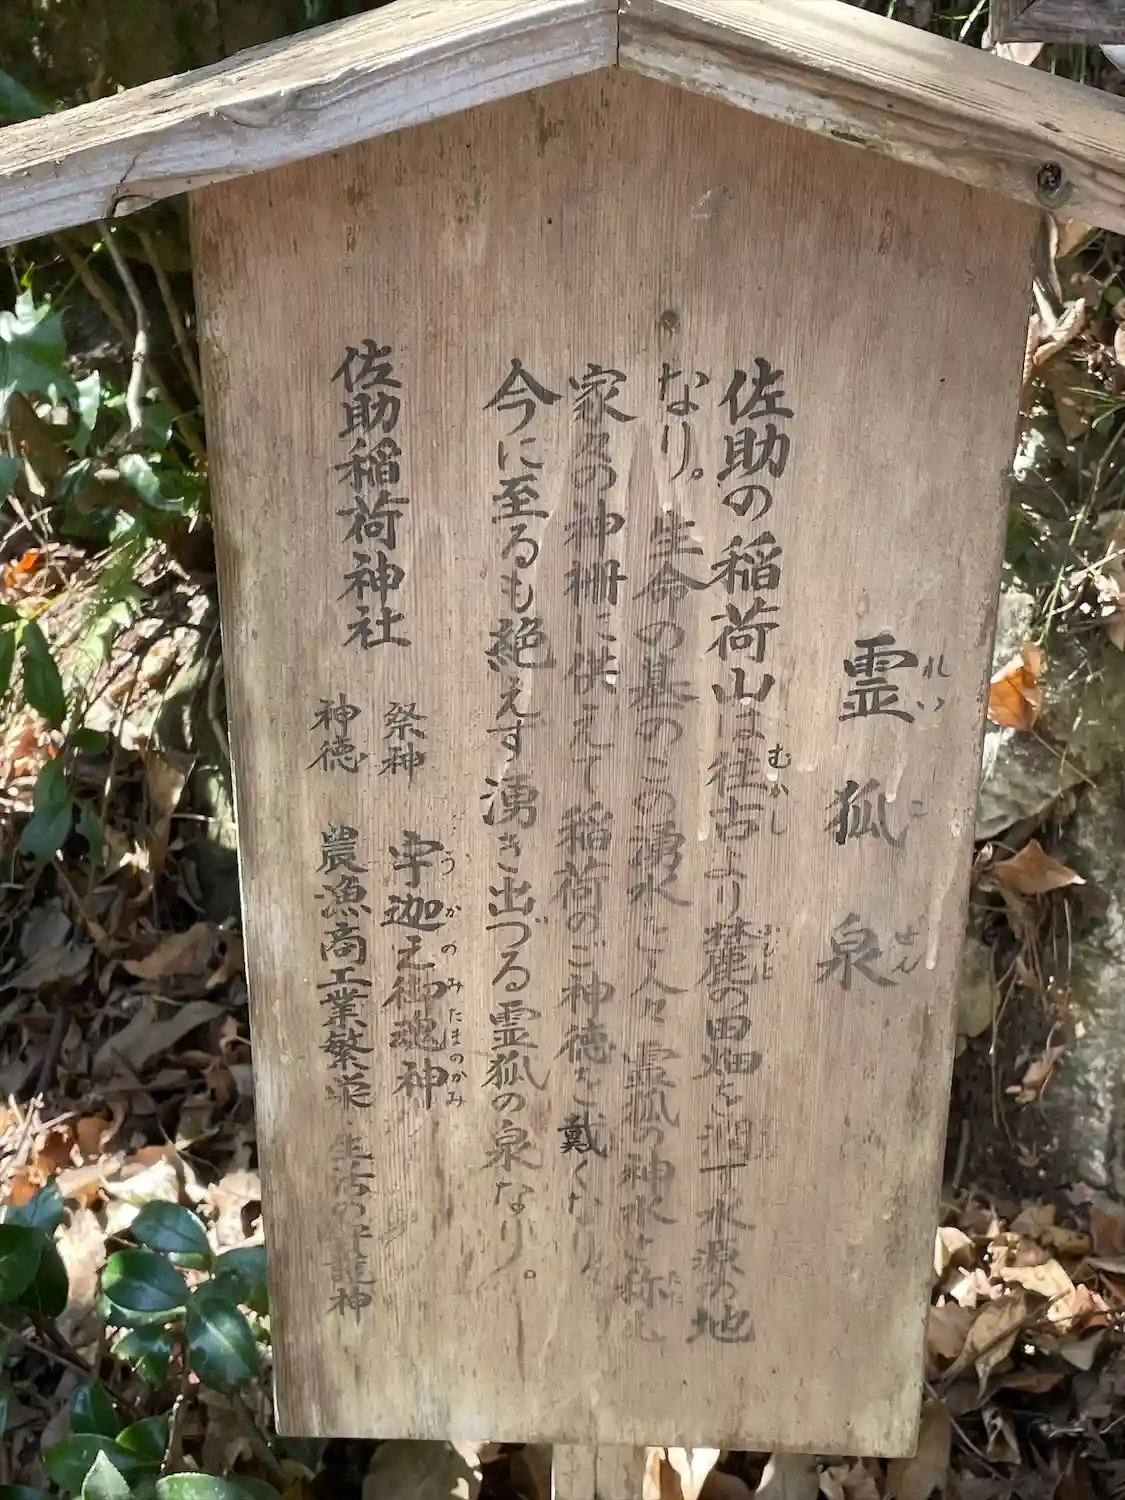 霊狐泉
れいこせん
佐助の稲荷山は往古より麓の田畑を潤す水源の地
むかし
ふもと
なり。生命の基のこの湧水を人々霊狐の神水と称え
家々の神棚に供えて稲荷のご神徳を戴くなり。
今に至るも絶えず湧き出づる霊狐の泉なり。
佐助稲荷神社
祭神 宇迦之御魂神
うかのみたまのかみ
神徳 農漁商工業繁栄・生活の守護神